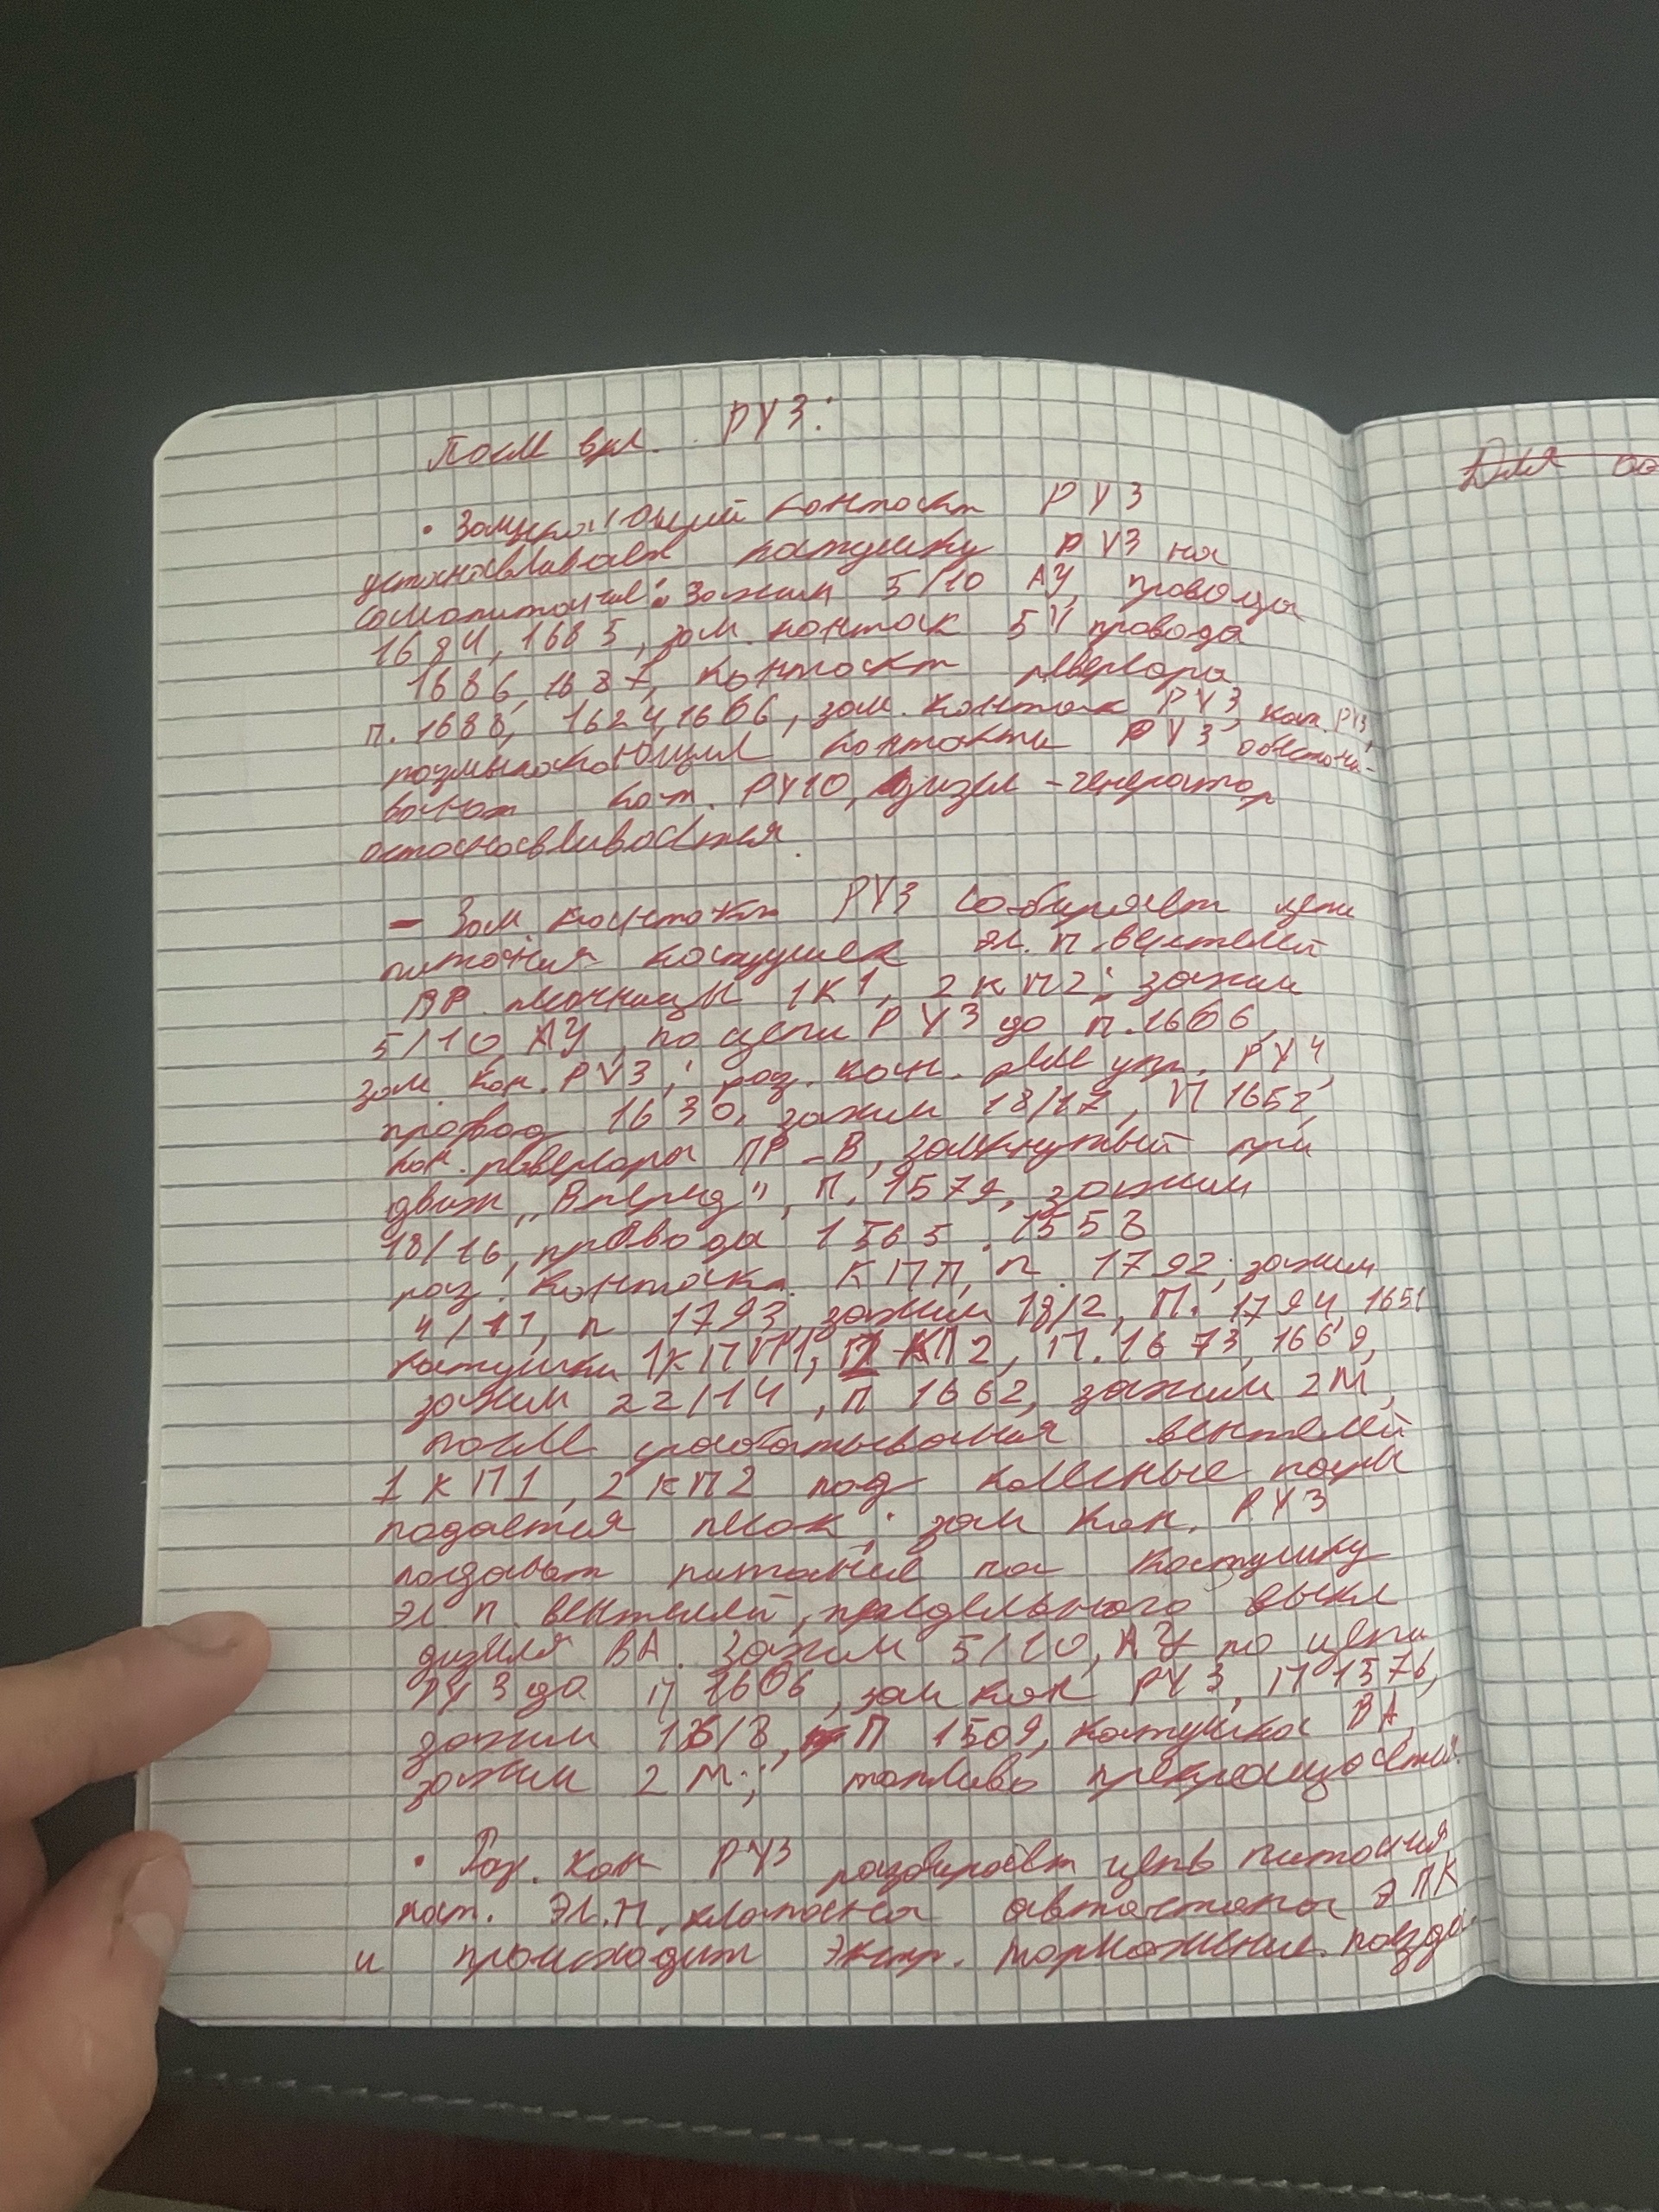 После вкл. РУ3:
• Замыкающий контакт РУ3
устанавливает катушку РУ3 на
самопитание: Зажим 5/10 АУ, провода
1684, 1685, зам. контак 5У провода
1686, 1687, контакт реверсора
п. 1688, 1624, 1606, зам. контак РУ3, кат. РУ3,
размыкающия контакты РУ3 обесточи-
вают кат. РУ10, дизел - генератор
останавливается.
- Зам. контакт РУ3 собирает цепи
питания катушек эл. п. вентелей
песочницы 1К1, 2КП2; зажим
5/10, АУ, по цепи РУ3 до п. 1606,
зам. кон. РУ3, раз. кон. реле упр. РУ4,
провод 1630, зажим 18/17, П 1652,
кон. реверсора ПР-В, замкнутый при
движ „Вперед", П. 1579, зажим
18/16, провода 1565, 1558
раз. контакт. КПП, п. 1792; зажим
4/11, п 1793, зажим 18/2, П. 1794 1651
катушки 1КП1, КП2, П. 1673, 1669,
зажим 22/14, П 1662, зажим 2М,
после срабатывания вентелей
1 КП1, 2 КП2 под колесные пары
подается песок; зам кон. РУ3
подает питание на катушку
эл. п. вентелей, предельного выкл
дизеля ВА. Зажим 5/10, АУ по цепи
РУ3 до П 1606, зам кон РУ3, П 1576,
зажим 16/8, П 1509, катушка ВА,
зажим 2М; топливо прекращается.
• Раз. кон РУ3 разбирает цепь питания
кат. Эл.П. клапана автостопа ЭПК
и происходит экстр. торможение поезда.
Для